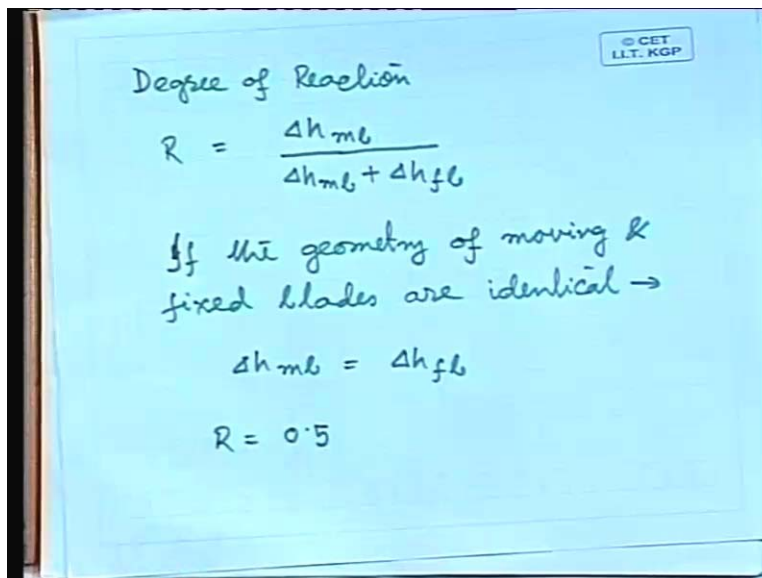 © CET
I.I.T. KGP
Degree of Reaction
R = Δh mb / Δh mb + Δh fb
If the geometry of moving &
fixed blades are identical →
Δh mb = Δh fb
R = 0.5